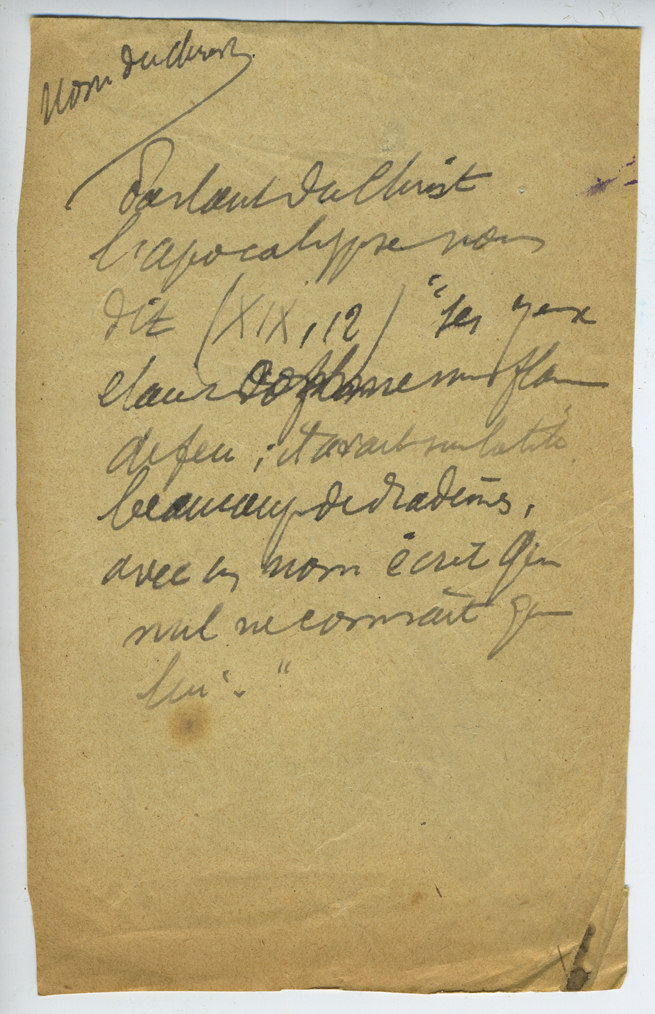 Nom du Christ
Parlant du Christ
l'apocalypse nous
dit (XIX, 12) "ses yeux
étaient comme une flamme
de feu ; il avait sur la tête
beaucoup de diadèmes,
avec un nom écrit que
nul ne connaît que
lui."